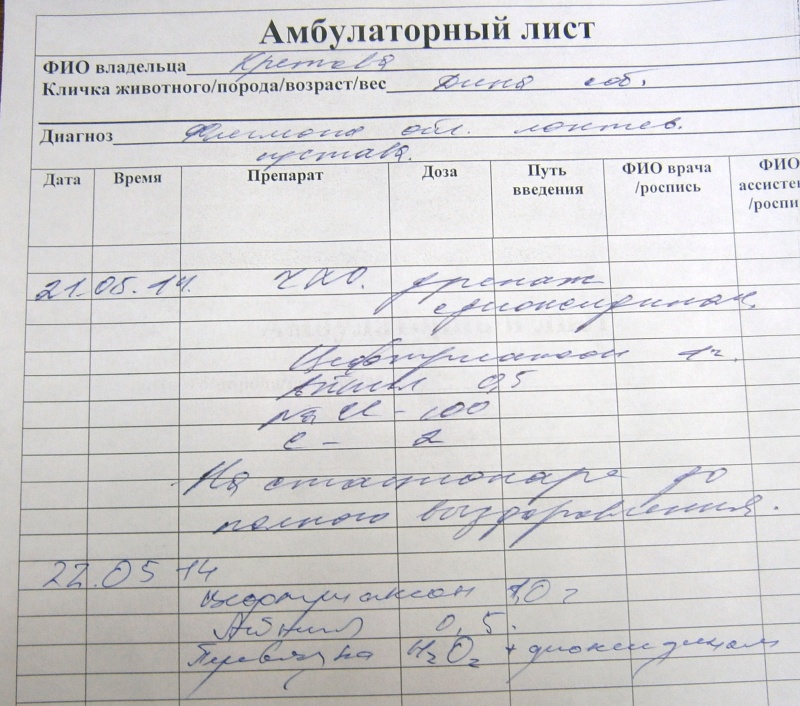 Амбулаторный лист
ФИО владельца Кретова
Кличка животного/порода/возраст/вес Дина соб.
Диагноз Флегмона обл. локтев.
сустава.
Дата Время Препарат Доза Путь введения ФИО врача /роспись ФИО ассистен /роспи
21.05.14. ЧХО. дренаж
с диоксидином.
Цефтриаксон 1г.
Айнил 0,5
NaCl - 100
C - 2
На стационаре до
полного выздоровления.
22.05 14
Цефтриаксон 1,0 г
Айнил 0,5.
Перевязка H2O2 + диоксидином